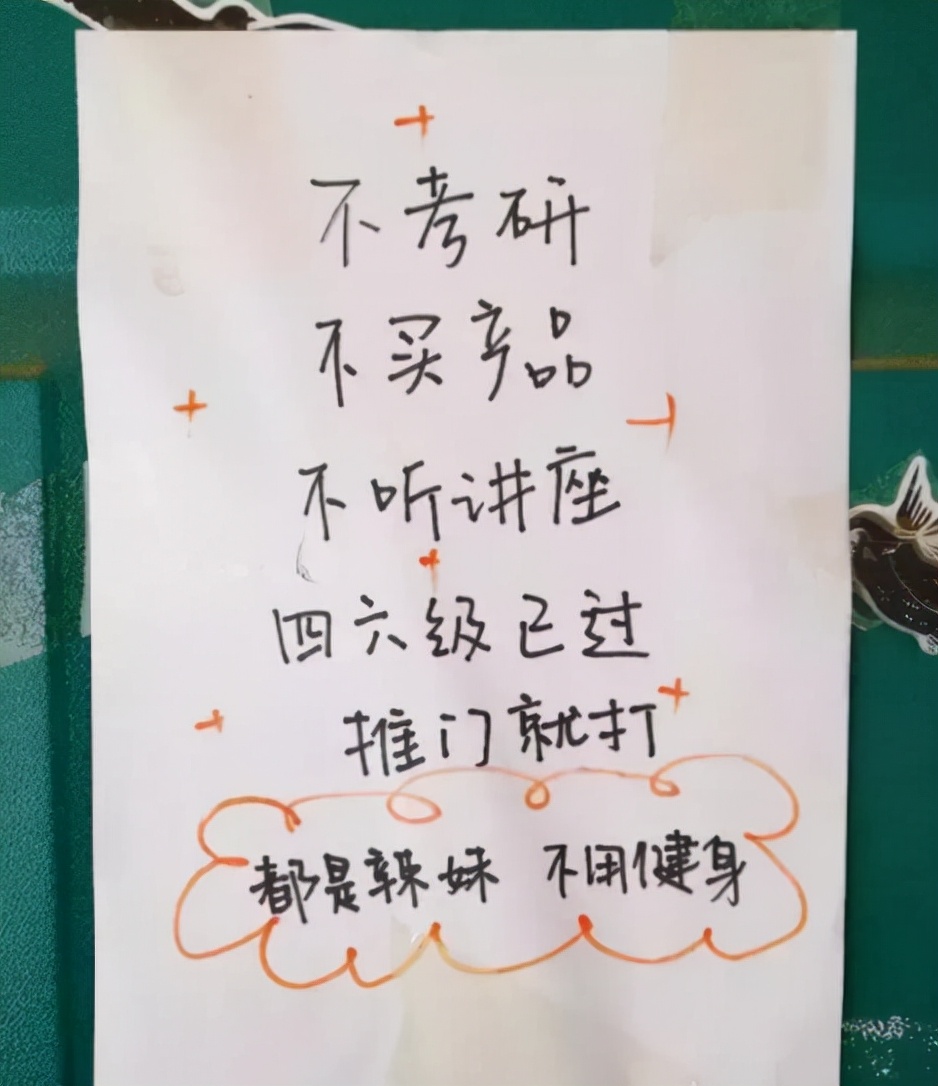 不考研
不买产品
不听讲座
四六级已过
推门就打
都是辣妹 不用健身